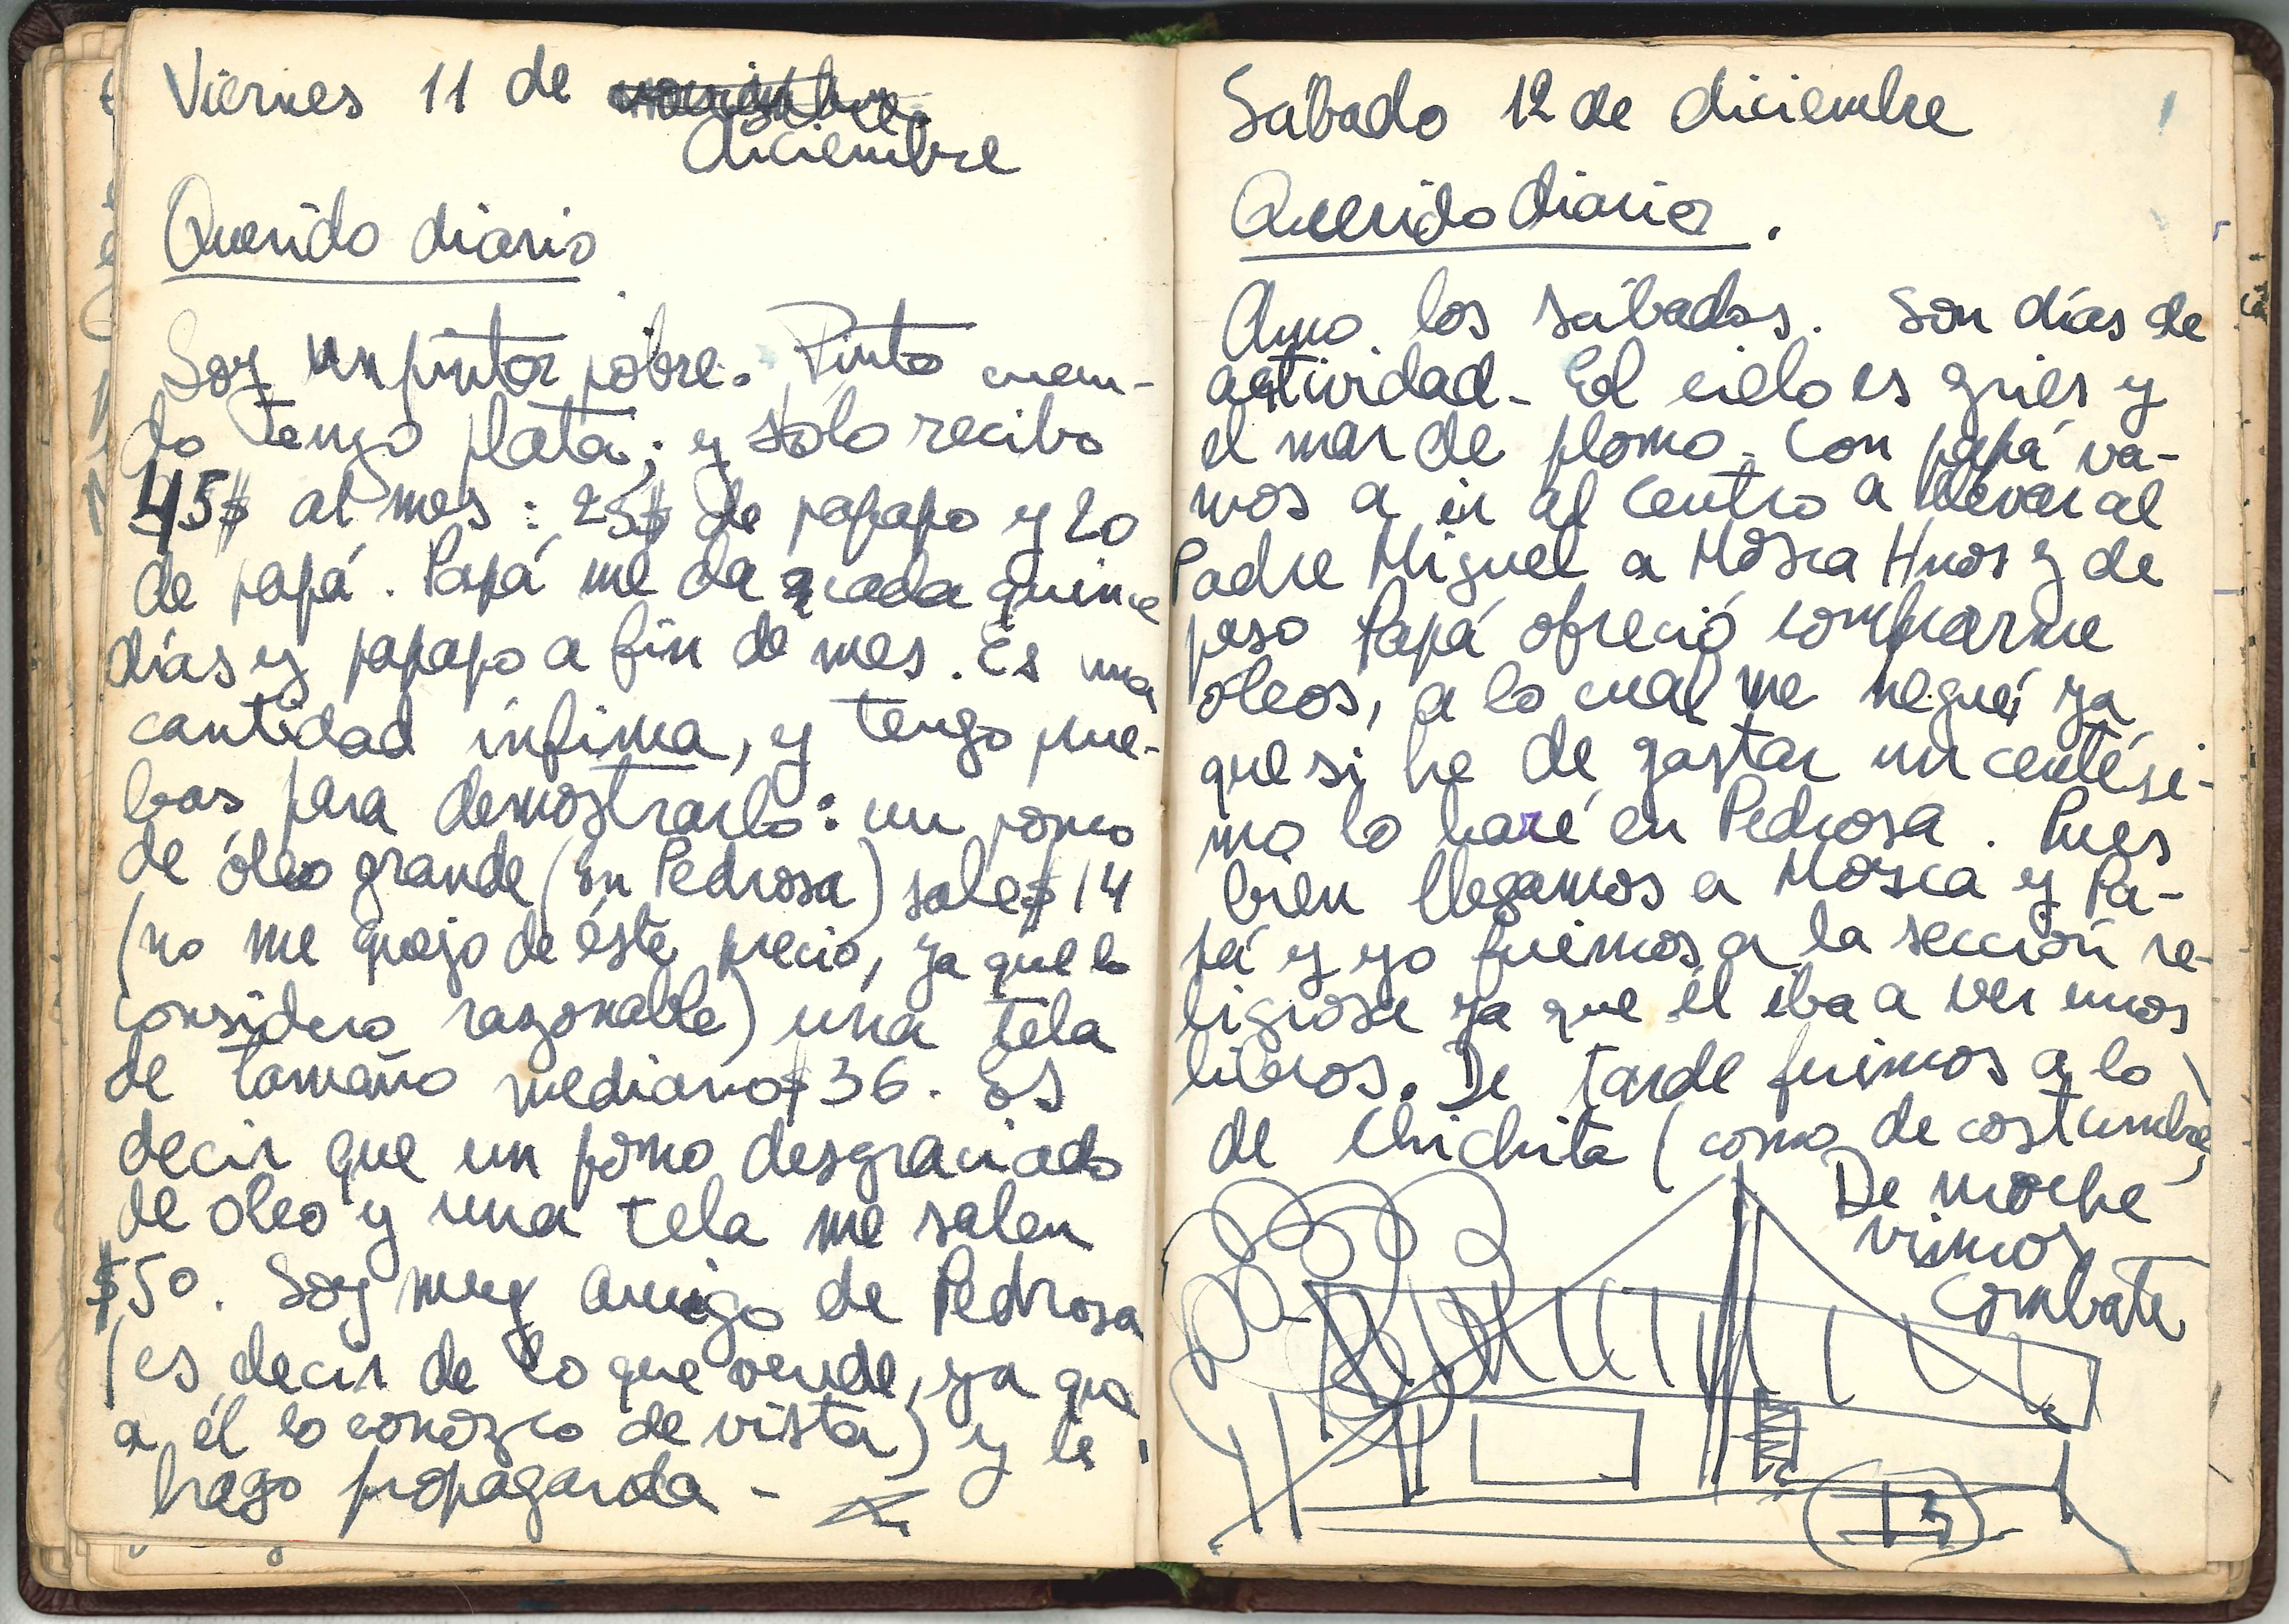 Viernes 11 de noviembre
diciembre
Querido diario
Soy un pintor pobre. Pinto cuan-
do tengo plata; y sólo recibo
45$ al mes: 25$ de papapo y 20
de papá. Papá me da cada quince
días y papapo a fin de mes. Es una
cantidad ínfima, y tengo prue-
bas para demostrarlo: un pomo
de óleo grande (en Pedrosa) sale $14
(no me quejo de éste precio, ya que lo
considero razonable) una tela
de tamaño mediano $36. Es
decir que un pomo desgraciado
de oleo y una tela me salen
$50. Soy muy amigo de Pedrosa
(es decir de lo que vende, ya que
a él lo conozco de vista) y le
hago propaganda -
Sábado 12 de diciembre
Querido diario.
Amo los sábados. Son días de
actividad - El cielo es gries y
el mar de plomo. Con papá va-
mos a ir al centro a llevar al
Padre Miguel a Mosca Hnos y de
paso Papá ofreció comprarme
oleos, a lo cual me negué ya
que si he de gastar un centési-
mo lo haré en Pedrosa. Pues
bien llegamos a Mosca y Pa-
pá y yo fuimos a la sección re-
ligiosa ya que él iba a ver unos
libros. De tarde fuimos a lo
de Chichita (como de costumbre)
De noche
vimos
Combate